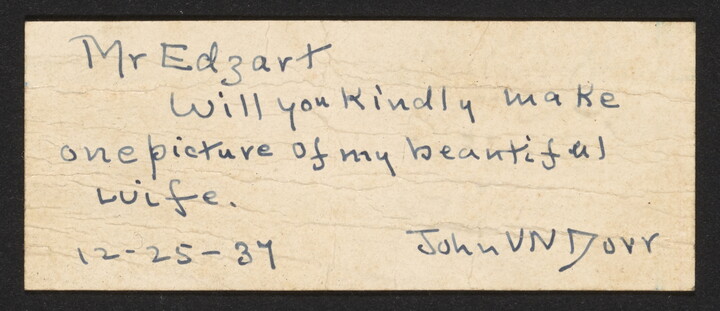 Mr Edzart
Will you kindly make
one picture of my beautiful
wife.
12-25-37 John VN Dorr